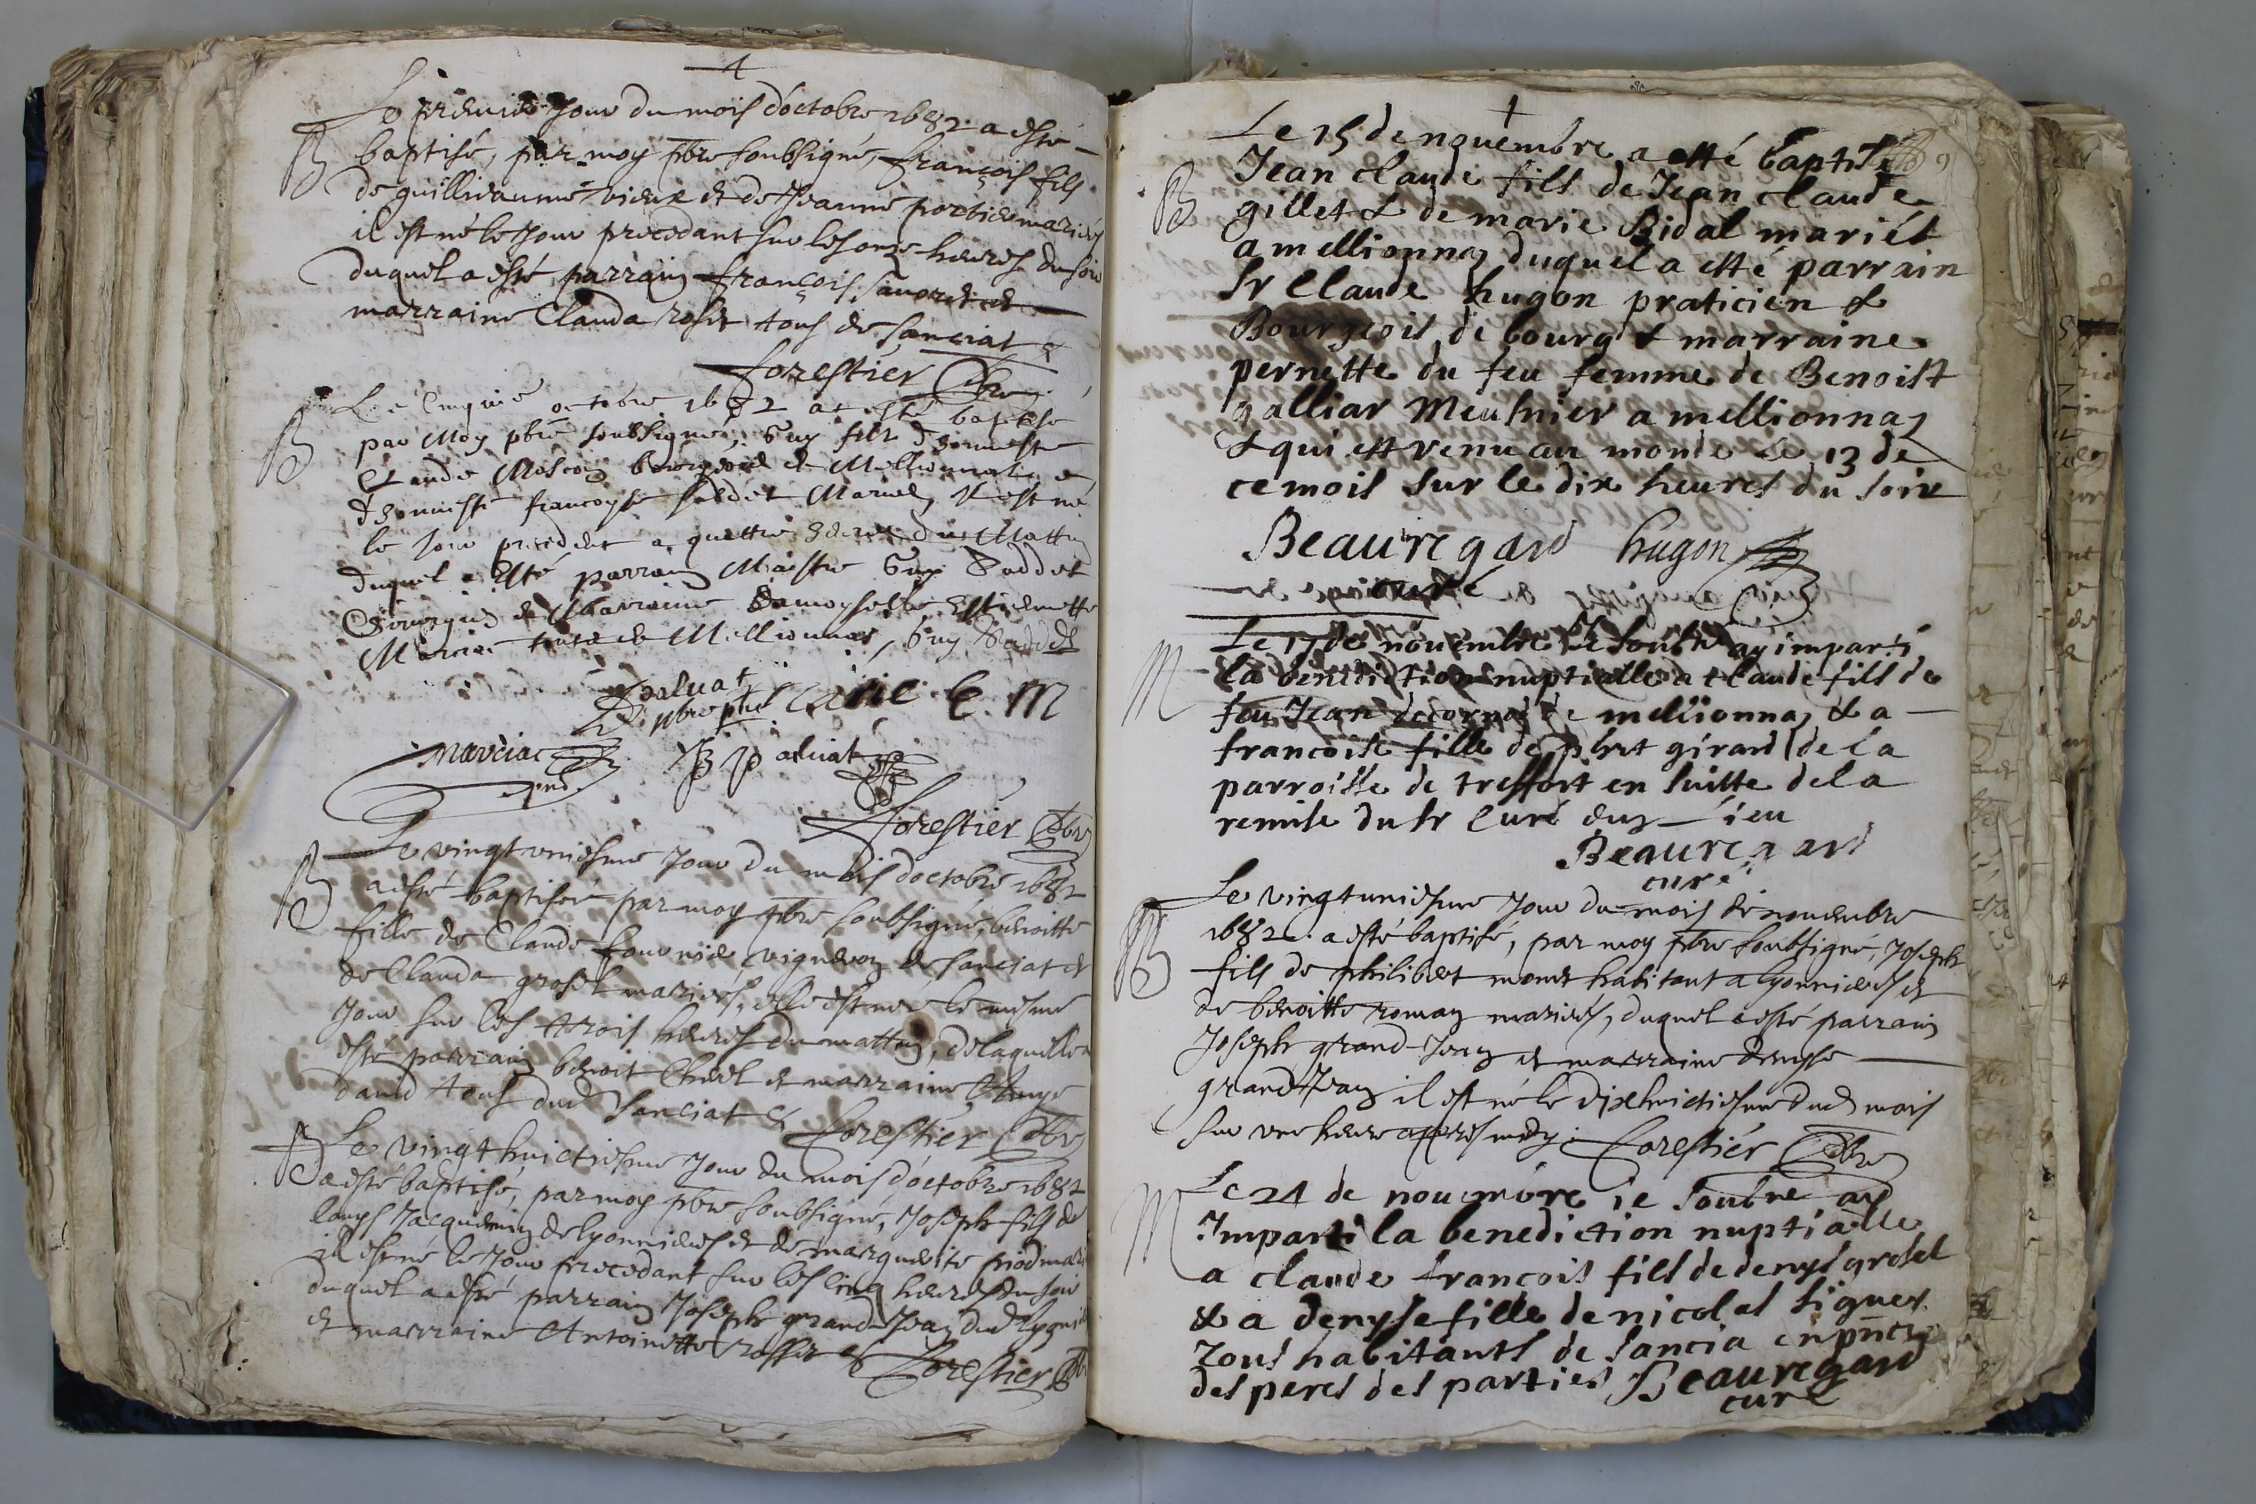 Le premier Jour du mois d'octobre 1682 a esté
baptisé, par moy pbre soubsigné, françois fils
de guilliaume vieux et de Jeanne portier mariés
il est né le Jour precedant sur les onze heures du soir
duquel a esté parrain françois et
marraine Clauda tous de sanciat
forestier pbre
B
Le octobre 1682 a esté baptisé
par Moy pbre soubsigné, Guy filz d'honneste
Claude bourgeois de Mellionnas et
d'honneste françoyse Mariés, Il est né
le Jour precedent a quattre heures du Mattin
duquel a Esté parrain Maistre Guy
Bourgeois et Marraine Damoyselle Estiennette
Marciac touts de Mellionnas, Guy
B
paluat
pbre e. m
marciac paluat
forestier pbre
Le vingt uniesme Jour du mois d'octobre 1682
a esté baptisée par moy pbre soubsigné, benoitte
fille de Claude fournier vigneron de sanciat et
de Clauda grosel mariés, elle est née le mesme
Jour sur les trois heures du mattin, de laquelle a
esté parrain benoit et marraine
tous dud sanciat forestier pbre
B
Le vingt huictiesme Jour du mois d'octobre 1682
a esté baptisé, par moy pbre soubsigné, Joseph fils de
louys Jacquemin de lyonnieres et de marguerite
il est né le Jour precedant sur les cinq heures du soir
duquel a esté parrain Joseph grand Jean dud
et marraine Antoinette forestier pbre
Le 15 de nouembre a etté baptisé 9
Jean claude fils de Jean claude
B
gillet & de marie Bidal mariés
a mellionnas duquel a etté parrain
Sr Claude hugon praticien &
Bourgeois de bourg & marraine
pernette du feu femme de Benoist
galliar Meusnier a mellionnas
& qui est venu au monde le 13 de
ce mois sur le dix heures du soir
Beauregard hugon
curé
M
Le 17 de nouembre Je soubné ay imparti
la benediction nuptialle a claude fils de
feu Jean de mellionnas & a
francoise fille de girard de la
parroisse de treffort en suitte de la
remise du Sr Curé dud lieu
Beauregard
curé
B
Le vingt uniesme Jour du mois de nouembre
1682 a esté baptisé, par moy pbre soubsigné, Joseph
fils de philibert habitant a lyonnieres et
de benoitte roman mariés, duquel a esté parrain
Joseph grand Jean et marraine denyse
grand Jean il est né le dixhuictiesme dud mois
sur une heure appres midy forestier pbre
M
Le 24 de nouembre ie soubné ay
Imparti la benediction nuptialle
a claude francois fils de denys grosel
& a denyse fille de nicolas
tous habitants de sancia en pnce
des peres des parties Beauregard
curé